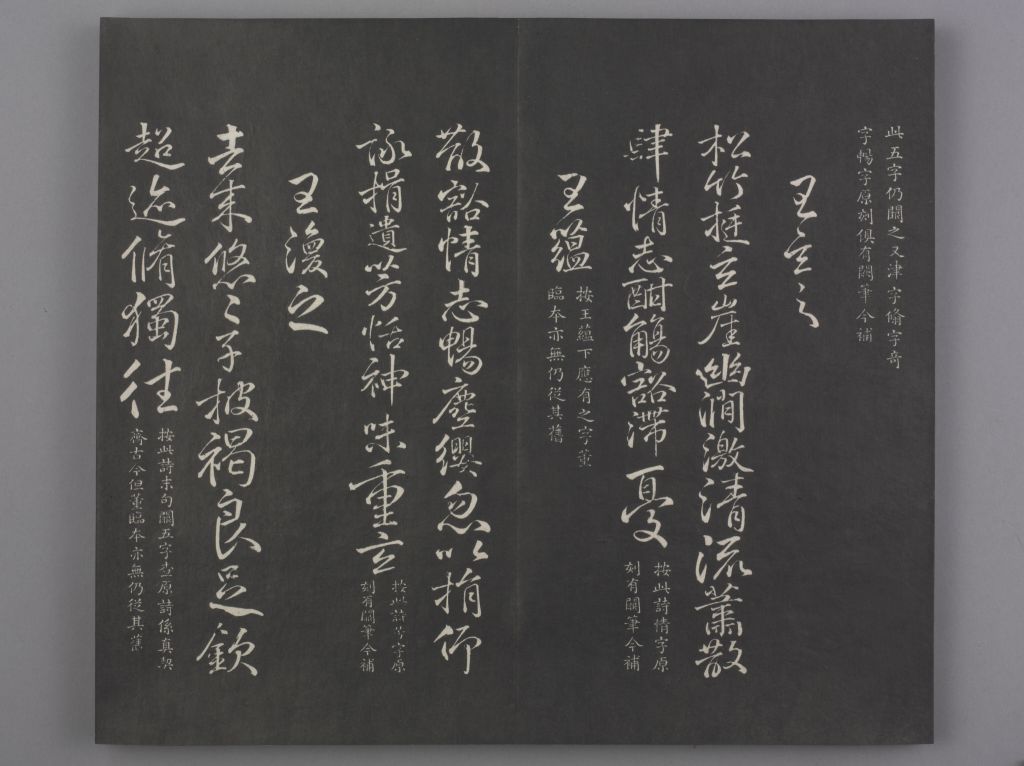 此五字仍闕之又津字脩字奇
字暢字原刻俱有闕筆今補
王玄之
松竹挺玄崖幽澗激清流蕭散
肆情志酣觴豁滯憂
按此詩情字原
刻有闕筆今補
王蘊
按王蘊下應有之字董
臨本亦無仍從其舊
散豁情志暢塵纓忽以捐仰
詠挹遺芳怡神味重玄
按此詩芳字原
刻有闕筆今補
王渙之
去來悠〻子披褐良足欽
超迹脩獨往
按此詩末句闕五字查原詩係真契
齊古今但董臨本亦無仍從其舊